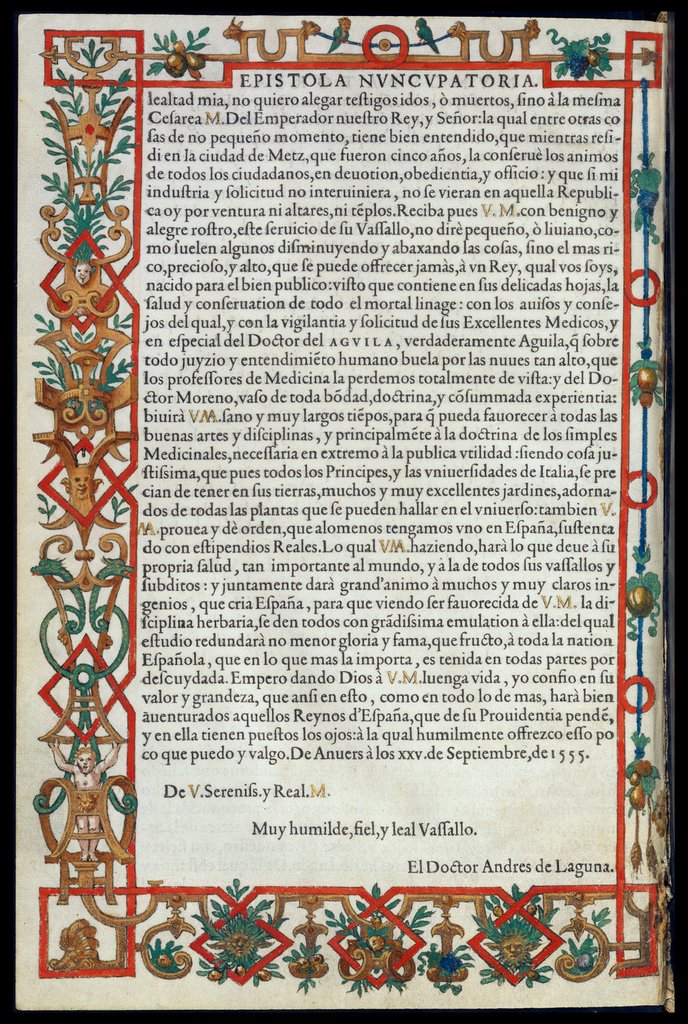 EPISTOLA NVNCVPATORIA.
lealtad mia, no quiero alegar teſtigos idos, ò muertos, ſino à la meſma
Ceſarea M. Del Emperador nueſtro Rey, y Señor: la qual entre otras co
ſas de no pequeño momento, tiene bien entendido, que mientras reſi-
di en la ciudad de Metz, que fueron cinco años, la conſeruè los animos
de todos los ciudadanos, en deuotion, obedientia, y officio: y que ſi mi
induſtria y ſolicitud no interuiniera, no ſe vieran en aquella Republi-
ca oy por ventura ni altares, ni tēplos. Reciba pues V. M. con benigno y
alegre roſtro, eſte ſeruicio de ſu Vaſſallo, no dirè pequeño, ò liuiano, co-
mo ſuelen algunos diſminuyendo y abaxando las coſas, ſino el mas ri-
co, precioſo, y alto, que ſe puede offrecer jamàs, à vn Rey, qual vos ſoys,
nacido para el bien publico: viſto que contiene en ſus delicadas hojas, la
ſalud y conſeruation de todo el mortal linage: con los auiſos y conſe-
jos del qual, y con la vigilantia y ſolicitud de ſus Excellentes Medicos, y
en eſpecial del Doctor del AGVILA, verdaderamente Aguila, q̃ ſobre
todo juyzio y entendimiẽto humano buela por las nuues tan alto, que
los profeſſores de Medicina la perdemos totalmente de viſta: y del Do-
ctor Moreno, vaſo de toda bõdad, doctrina, y cõſummada experientia:
biuirà V.M. ſano y muy largos tiẽpos, para q̃ pueda fauorecer à todas las
buenas artes y diſciplinas, y principalmẽte à la doctrina de los ſimples
Medicinales, neceſſaria en extremo à la publica vtilidad: ſiendo coſa ju-
ſtiſsima, que pues todos los Principes, y las vniuerſidades de Italia, ſe pre
cian de tener en ſus tierras, muchos y muy excellentes jardines, adorna-
dos de todas las plantas que ſe pueden hallar en el vniuerſo: tambien V.
M. prouea y dè orden, que alomenos tengamos vno en Eſpaña, ſuſtenta
do con eſtipendios Reales. Lo qual V.M. haziendo, harà lo que deue à ſu
propria ſalud, tan importante al mundo, y à la de todos ſus vaſſallos y
ſubditos: y juntamente darà grand'animo à muchos y muy claros in-
genios, que cria Eſpaña, para que viendo ſer fauorecida de V.M. la di-
ſciplina herbaria, ſe den todos con grãdiſsima emulation à ella: del qual
eſtudio redundarà no menor gloria y fama, que fructo, à toda la nation
Eſpañola, que en lo que mas la importa, es tenida en todas partes por
deſcuydada. Empero dando Dios à V.M. luenga vida, yo confio en ſu
valor y grandeza, que anſi en eſto, como en todo lo de mas, harà bien
auenturados aquellos Reynos d'Eſpaña, que de ſu Prouidentia pendẽ,
y en ella tienen pueſtos los ojos: à la qual humilmente offrezco eſſo po
co que puedo y valgo. De Anuers à los xxv. de Septiembre, de 1555.
De V. Sereniſs. y Real. M.
Muy humilde, fiel, y leal Vaſſallo.
El Doctor Andres de Laguna.